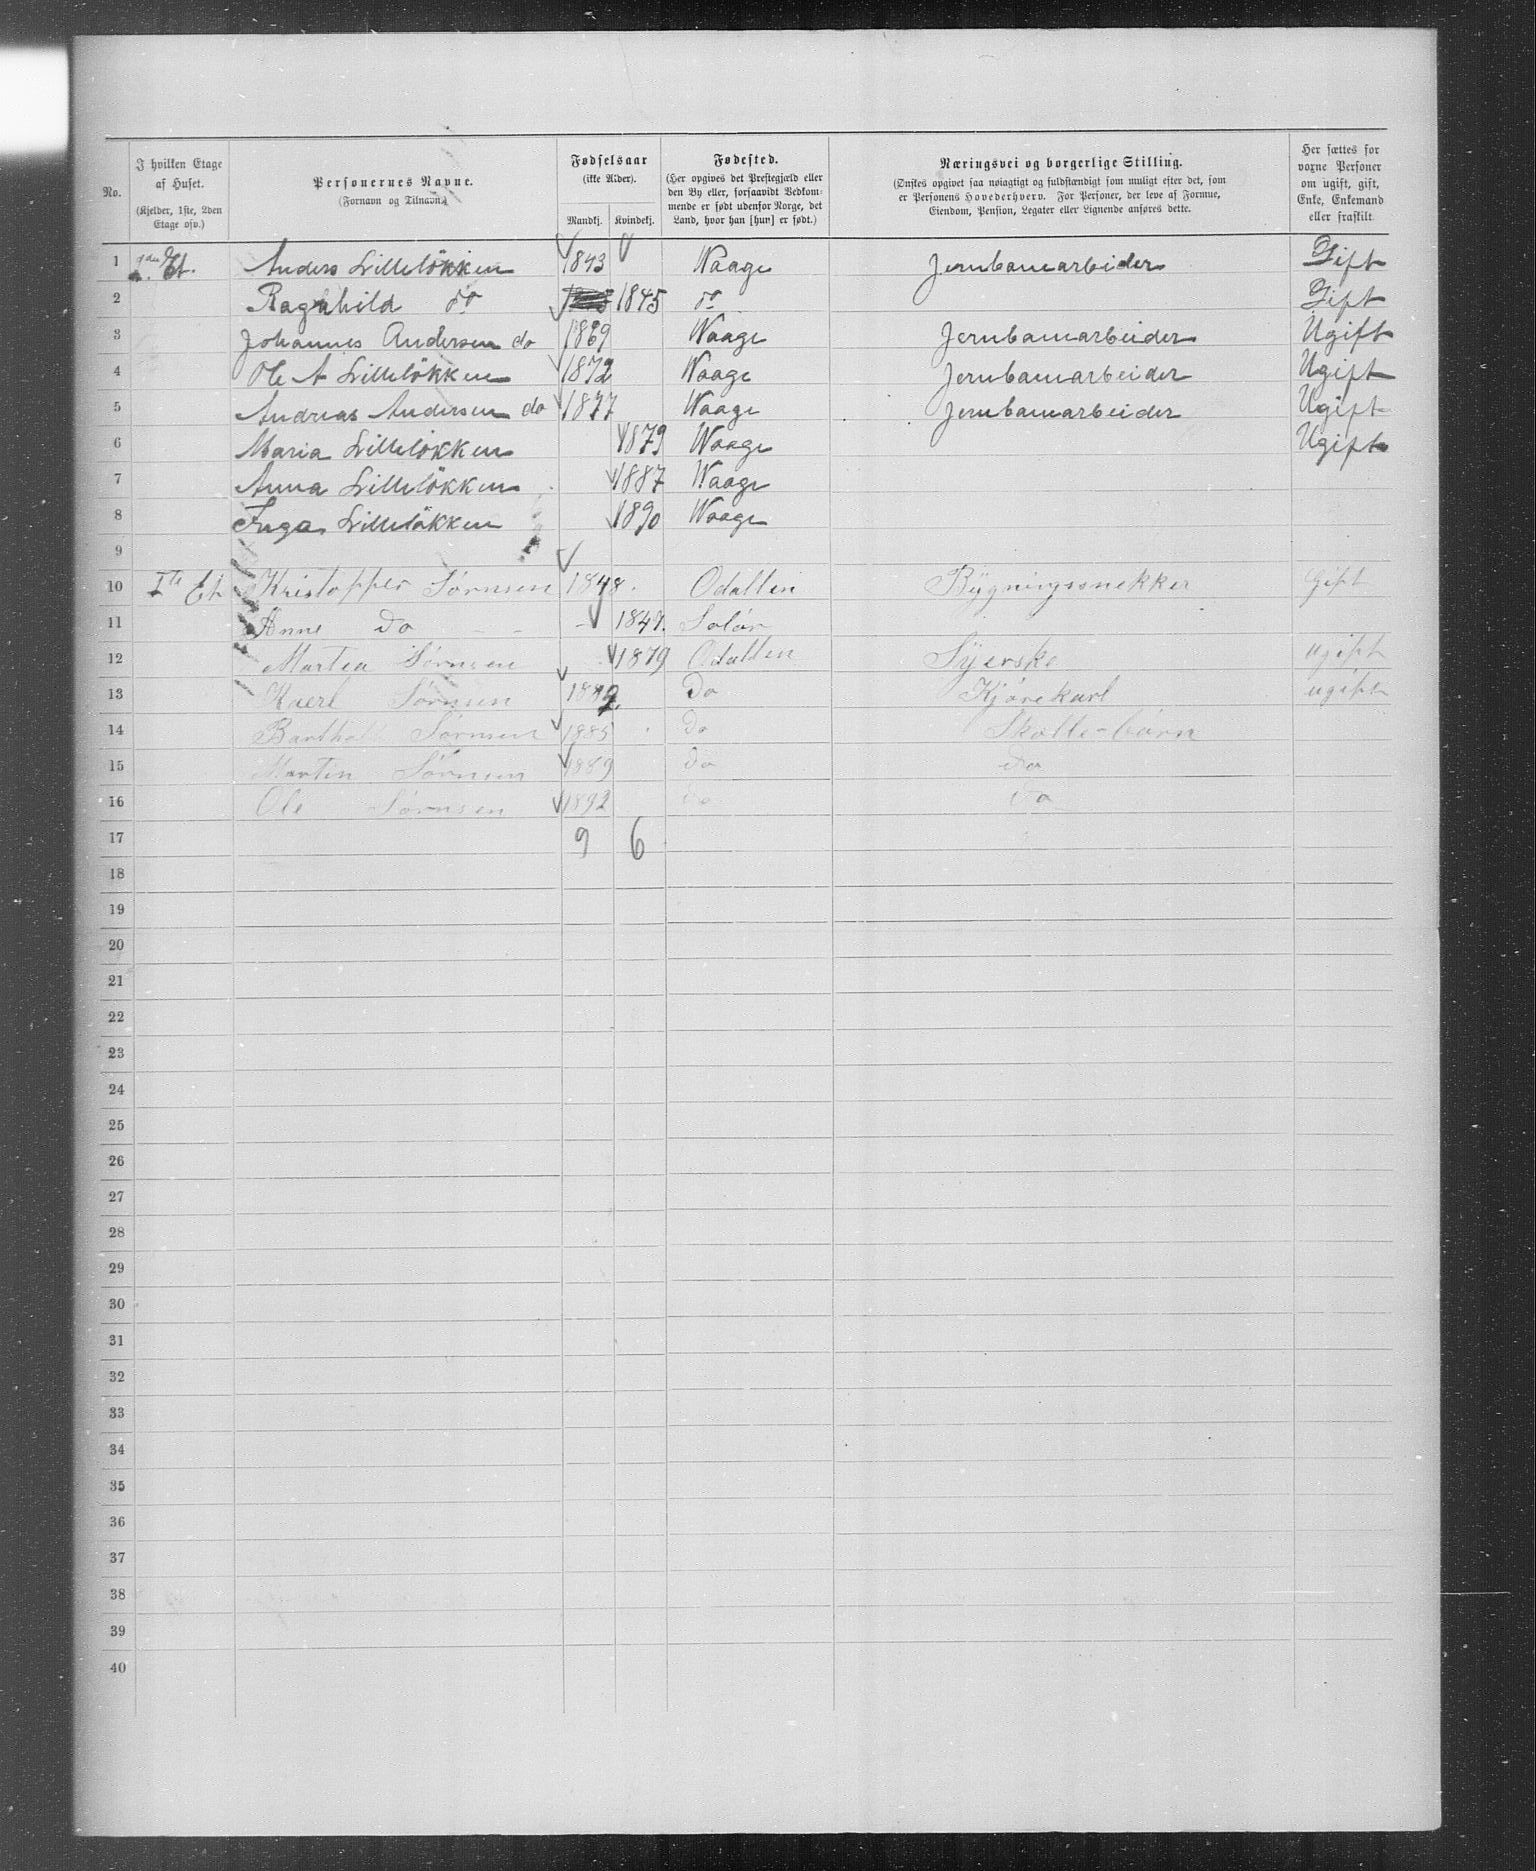 No. I hvilken Etage af Huset. (Kjelder, 1ste, 2den Etage osv.) Personernes Navne. (Fornavn og Tilnavn.) Fødselsaar (ikke Alder). Mandkj. Kvindekj. Fødested. (Her opgives det Prestegjæld eller den By eller, forsaavidt Vedkommende er født udenfor Norge, det Land, hvor han [hun] er født.) Næringsvei og borgerlige Stilling. (Ønskes opgivet saa nøiagtigt og fuldstændigt som muligt efter det, som er Personens Hovederhverv. For Personer, der leve af Formue, Eiendom, Pension, Legater eller Lignende anføres dette. Her sættes for voxne Personer om ugift, gift, Enke, Enkemand eller fraskilt.
1 2den Et. Anders Lilleløkken 1843 Waage Jernbanearbeider Gift
2 Ragnhild do 1845 do Gift
3 Johannes Andersen do 1869 Waage Jernbanearbeider Ugift
4 Ole A Lilleløkken 1872 Waage Jernbanearbeider Ugift
5 Andreas Andersen do 1877 Waage Jernbanearbeider Ugift
6 Maria Lilleløkken 1879 Waage Ugift
7 Anna Lilleløkken 1887 Waage
8 Inga Lilleløkken 1890 Waage
9
10 1te Et Kristoffer Sørnsen 1848. Odallen Bygningssnekker Gift
11 Anne Do 1849. Solør
12 Martea Sørnsen 1879 Odallen Syerske ugift
13 Kaerl Sørnsen 1882 Do Kjørekarl ugift
14 Barthol Sørnsen 1885 Do Skolle-børn
15 Martin Sørnsen 1889 Do Do
16 Ole Sørnsen 1892 Do Do
17 9 6
18
19
20
21
22
23
24
25
26
27
28
29
30
31
32
33
34
35
36
37
38
39
40